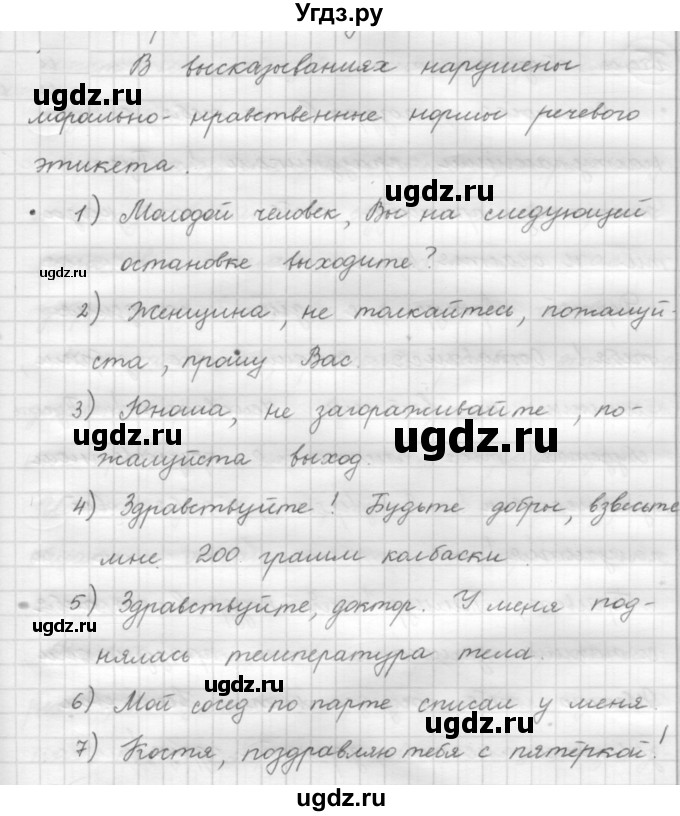 Угдз.ру
В высказываниях нарушены
ugdz.ru
морально- нравственные нормы речевого
ugdz.ru
этикета.
1) Молодой человек, Вы на следующей
ugdz.ru
остановке выходите?
2) Женщина, не толкайтесь, пожалуй-
ста, прошу Вас.
3) Юноша, не загораживайте, по-
ugdz.ru
ugdz.ru
жалуйста выход.
4) Здравствуйте! Будьте добры, взвесьте
мне 200 грамм колбаски
5) Здравствуйте, доктор. У меня под-
ugdz.ru
нялась температура тела.
ugdz.ru
6) Мой сосед по парте списал у меня.
ugdz.ru
7) Костя, поздравляю тебя с пятёркой!
ugdz.ru